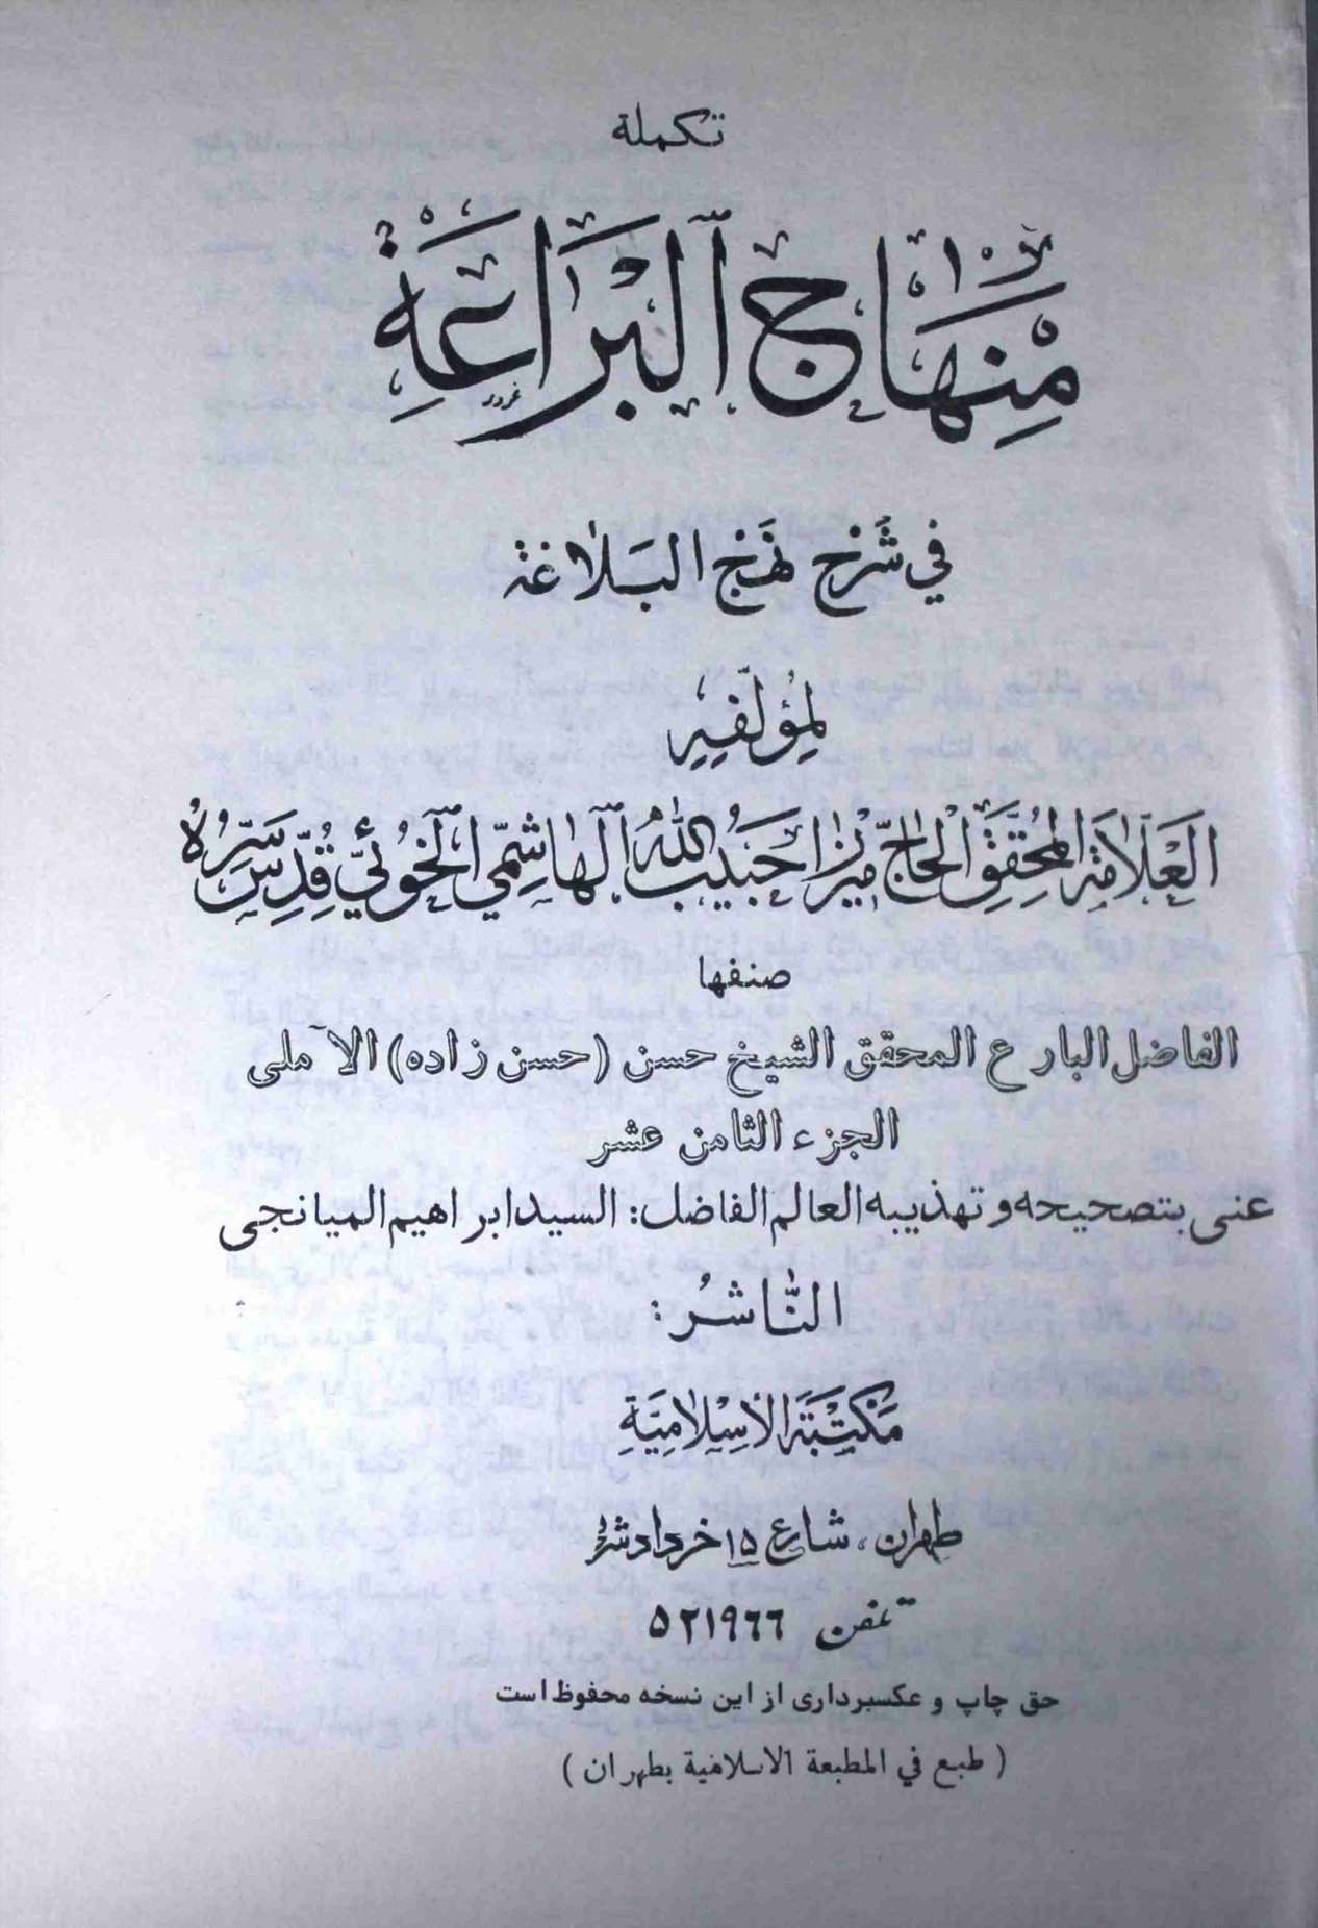 تكملة
مِنْهَاجُ الْبَرَاعَةِ
في شَرْحِ نَهْجِ البَلاغَة
لِمُؤَلِّفِهِ
العَلّامَة المُحَقِّق الحَاجّ ميرزا حَبيبُ اللّه الهاشِمّي الخُوئيّ قُدِّسَ سِرُّهُ
صنفها
الفاضل البارع المحقق الشيخ حسن (حسن زاده) الآملى
الجزء الثامن عشر
عنى بتصحيحه و تهذيبه العالم الفاضل: السيد ابراهيم الميانجى
النّاشرُ:
مَكتبَة الاسِلاميَّةِ
طهران، شارع ۱۵ خرداد
تلفن ۵۲۱۹٦٦
حق چاپ و عكسبردارى از اين نسخه محفوظ است
( طبع في المطبعة الاسلامية بطهران )